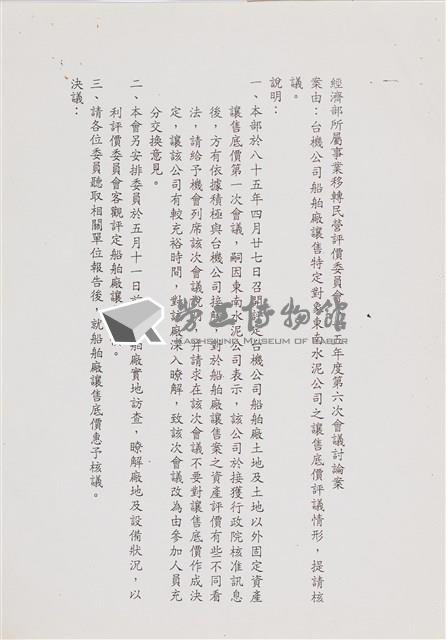 經濟部所屬事業移轉民營評價委員會 五年度第六次會議討論案
案由：台機公司船舶廠讓售特定對象東南水泥公司之讓售底價評議情形，提請核
議。
說明：
一、本部於八十五年四月廿七日召開 定台機公司船舶廠土地及土地以外固定資產
讓售底價第一次會議，嗣因東南水泥公司表示，該公司於接獲行政院核准訊息
後，方有依據積極與台機公司接 對於船舶廠讓售案之資產評價有些不同看
法，請給予機會列席該次會議說 并請求在該次會議不要對讓售底價作成決
定，讓該公司有較充裕時間，對該廠深入瞭解，致該次會議改為由參加人員充
分交換意見。
二、本會另安排委員於五月十一日 舶廠實地訪查，瞭解廠地及設備狀況，以
利評價委員會客觀評定船舶廠讓 。
三、請各位委員聽取相關單位報告後，就船舶廠讓售底價惠予核議。
決議：
勞工博物館
KAOHSIUNG MUSEUM OF LABOR